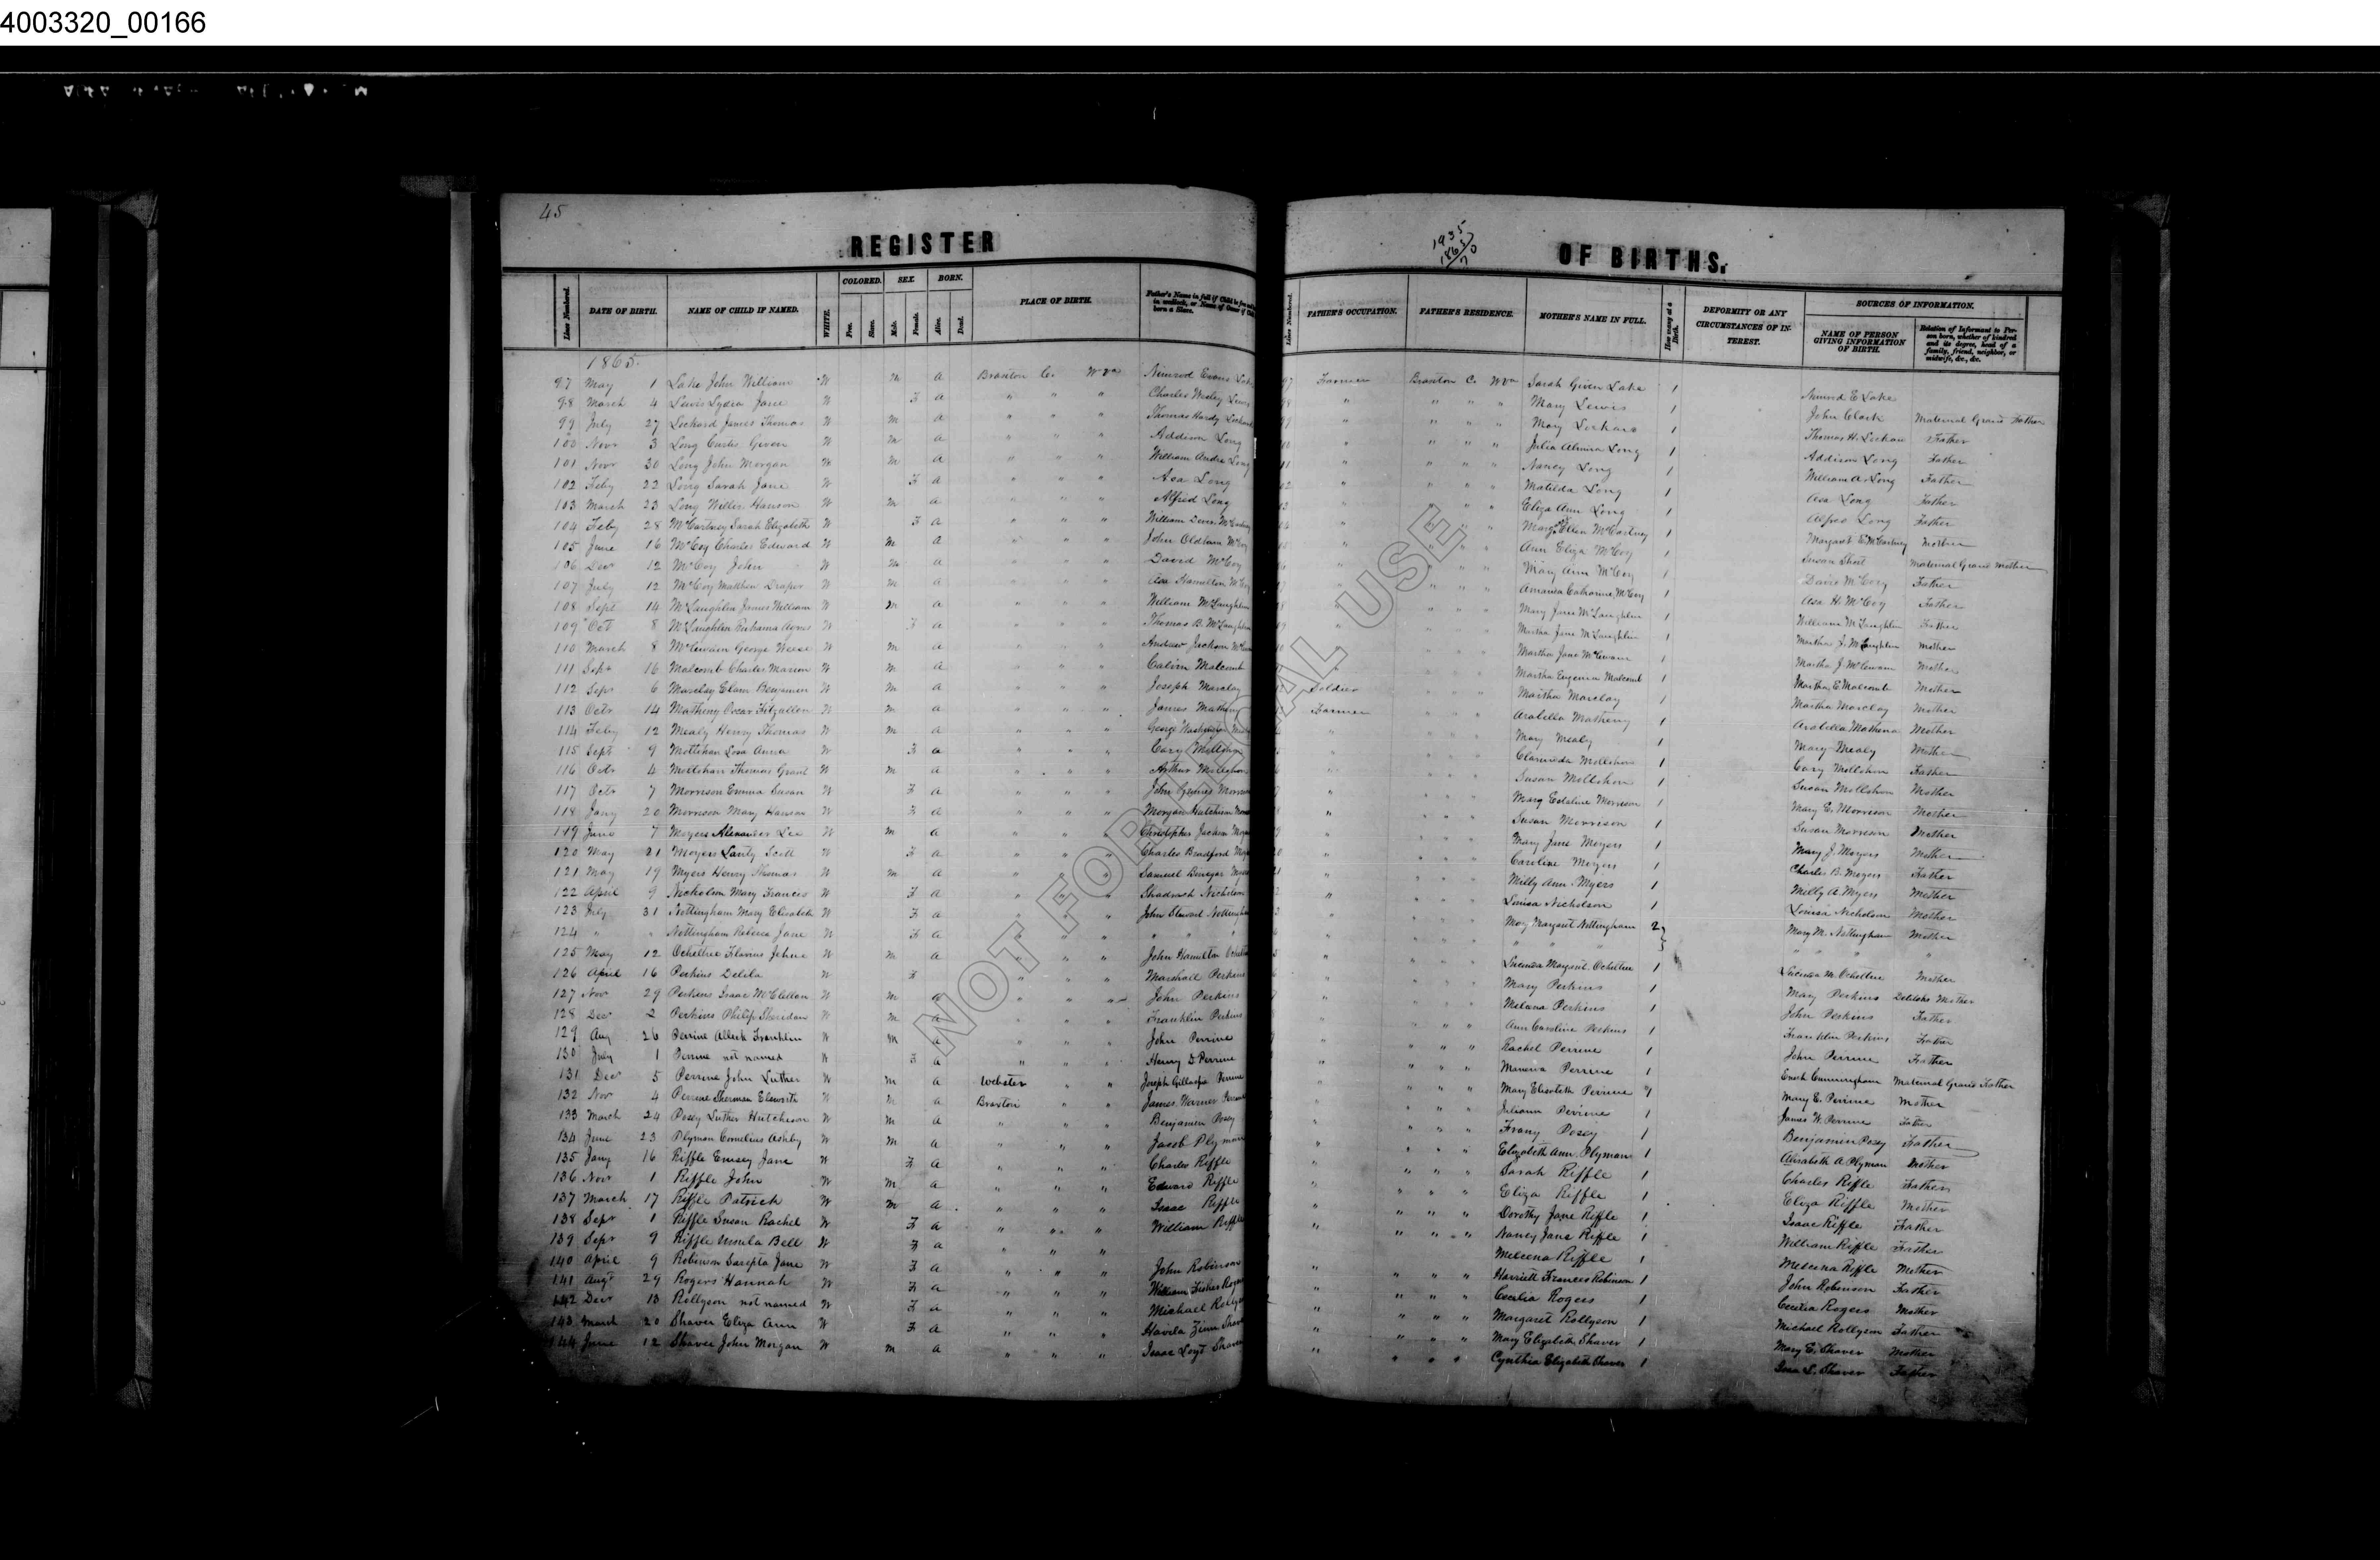 4003320_00166
45
REGISTER
OF BIRTHS.
1935
1865
70
Lines Numbered. DATE OF BIRTH. NAME OF CHILD IF NAMED. WHITE. COLORED. Free. Slave. SEX. Male. Female. BORN. Alive. Dead. PLACE OF BIRTH. Father's Name in full if Child be free
Lines Numbered. FATHER'S OCCUPATION. FATHER'S RESIDENCE. MOTHER'S NAME IN FULL. How many at a Birth. DEFORMITY OR ANY CIRCUMSTANCES OF INTEREST. SOURCES OF INFORMATION. NAME OF PERSON GIVING INFORMATION OF BIRTH. Relation of Informant to Person born, whether of kindred and its degree, head of a family, friend, neighbor, or midwife, &c., &c.
1865.
97 May 1 Lake John William W M A Braxton Co. W Va Nimrod Evans Lake Farmer Braxton C. W Va Sarah Given Lake 1 Nimrod E Lake
98 March 4 Lewis Lydia Jane W F A " " " Charles Wesley Lewis " " " " Mary Lewis 1 John Clark Maternal Grand Father
99 July 27 Lockard James Thomas W M A " " " Thomas Hardy " " " " Mary 1 Thomas H. Father
100 Novr 3 Long Curtis Given W M A " " " Addison Long " " " " Julia Almira Long 1 Addison Long Father
101 Novr 30 Long John Morgan W M A " " " William Long " " " " Nancy Long 1 William A. Long Father
102 Feby 22 Long Sarah Jane W F A " " " Asa Long " " " " Matilda Long 1 Asa Long Father
103 March 23 Long Hanson W M A " " " Alfred Long " " " " Eliza Ann Long 1 Alfred Long Father
104 Feby 28 McCartney Sarah Elizabeth W F A " " " William " " " " Ellen McCartney 1 Margaret E McCartney Mother
105 June 16 McCoy Charles Edward W M A " " " John Oldham McCoy " " " " Ann Eliza McCoy 1 Susan Short Maternal Grand Mother
106 Decr 12 McCoy John W M A " " " David McCoy " " " " Mary Ann McCoy 1 David McCoy Father
107 July 12 McCoy Matthew Draper W M A " " " Asa Hamilton McCoy " " " " Amanda Catharine McCoy 1 Asa H. McCoy Father
108 Sept 14 McLaughlin James William W M A " " " William McLaughlin " " " " Mary Jane McLaughlin 1 William McLaughlin Father
109 Oct 8 McLaughlin Agnes W F A " " " Thomas B. McLaughlin " " " " Martha Jane McLaughlin 1 Martha J. McLaughlin Mother
110 March 8 George Weese W M A " " " Andrew Jackson " " " Martha Jane 1 Martha J. Mother
111 Sept 16 Malcomb Charles Marion W M A " " " Calvin Malcomb " " " Martha Eugenia Malcomb 1 Martha E. Malcomb Mother
112 Sept 6 Marclay W M A " " " Joseph Marclay Soldier " " " Martha Marclay 1 Martha Marclay Mother
113 Octr 14 Matheny Oscar Fitzallen W M A " " " James Matheny Farmer " " " Arabella Matheny 1 Arabella Mathena Mother
114 Feby 12 Mealy Henry Thomas W M A " " " George Washington " " " " Mary Mealy 1 Mary Mealy Mother
115 Sept 9 Anna W F A " " " Cary " " " " Mollohon 1 Cary Mollohon Father
116 Octr 4 Mollohan Thomas Grant W M A " " " Arthur " " " " Susan Mollohon 1 Susan Mollohon Mother
117 Octr 7 Morrison Emma Susan W F A " " " John " " " " Mary Morrison 1 Mary E. Morrison Mother
118 Jany 20 Morrison Mary Hanson W F A " " " Morgan " " " " Susan Morrison 1 Susan Morrison Mother
119 June 7 Moyers Alexander Lee W M A " " " Christopher Jackson " " " " Mary Jane Moyers 1 Mary J. Moyers Mother
120 May 21 Moyers Lanty Scott W F A " " " Charles Bradford " " " " Caroline Moyers 1 Charles B. Moyers Father
121 May 19 Myers Henry Thomas W M A " " " Samuel " " " " Milly Ann Myers 1 Milly A. Myers Mother
122 April 9 Nicholson Mary Frances W F A " " " Shadrach Nicholson " " " " Louisa Nicholson 1 Louisa Nicholson Mother
123 July 31 Nottingham Mary Elizabeth W F A " " John Stewart Nottingham " " " " Mary Margaret Nottingham 2 Mary M. Nottingham Mother
124 " " Nottingham Rebecca Jane W F A " " " " " " " " " " " " " " " "
125 May 12 Ocheltree W M A " " " John Hamilton " " " " Lucinda Margaret Ocheltree 1 Lucinda M. Ocheltree Mother
126 April 16 Perkins Delila W F " " " Marshall Perkins " " " " Mary Perkins 1 Mary Perkins Mother
127 Nov 29 Perkins Isaac McClellan W M A " " " John Perkins " " " " Perkins 1 John Perkins Father
128 Decr 2 Perkins Philip Sheridan W M A " " " Franklin Perkins " " " " Ann Caroline Perkins 1 Franklin Perkins Father
129 Aug 26 Perrine Franklin W M A " " " John Perrine " " " " Rachel Perrine 1 John Perrine Father
130 July 1 Perrine not named W F A " " " Henry D Perrine " " " " Perrine 1 Cunningham Maternal Grand Father
131 Decr 5 Perrine John Luther W M A Webster " " Joseph Gillaspie Perrine " " " " Mary Elizabeth Perrine 1 Mary E. Perrine Mother
132 Nov 4 Perrine Sherman W M A Braxton " " James Warner " " " " Juliann Perrine 1 James W. Perrine Father
133 March 24 Posey Luther Hutchison W M A " " " Benjamin Posey " " " " Posey 1 Benjamin Posey Father
134 June 23 Plyman Cornelius Ashby W M A " " " Jacob Plyman " " " " Elizabeth Ann Plyman 1 Elizabeth A Plyman Mother
135 Jany 16 Riffle Jane W F A " " " Charles Riffle " " " " Sarah Riffle 1 Charles Riffle Father
136 Novr 1 Riffle John W M A " " " Edward Riffle " " " " Eliza Riffle 1 Eliza Riffle Mother
137 March 17 Riffle Patrick W M A " " " Isaac Riffle " " " " Dorothy Jane Riffle 1 Isaac Riffle Father
138 Sept 1 Riffle Susan Rachel W F A " " " William Riffle " " " " Nancy Jane Riffle 1 William Riffle Father
139 Sept 9 Riffle Bell W F A " " " Riffle 1 Riffle Mother
140 April 9 Robinson Jane W F A " " " John Robinson " " " " Harriett Frances Robinson 1 John Robinson Father
141 Augt 29 Rogers Hannah W F A " " " William Fisher " " " " Cecelia Rogers 1 Cecelia Rogers Mother
142 Decr 13 Rollyson not named W F A " " " Michael " " " " Margaret Rollyson 1 Michael Rollyson Father
143 March 20 Shaver Eliza Ann W F A " " " " " " " Mary Elizabeth Shaver 1 Mary E. Shaver Mother
144 June 12 Shaver John Morgan W M A " " " Isaac Shaver " " " " Cynthia Elizabeth Shaver 1 L. Shaver Father
NOT FOR LEGAL USE